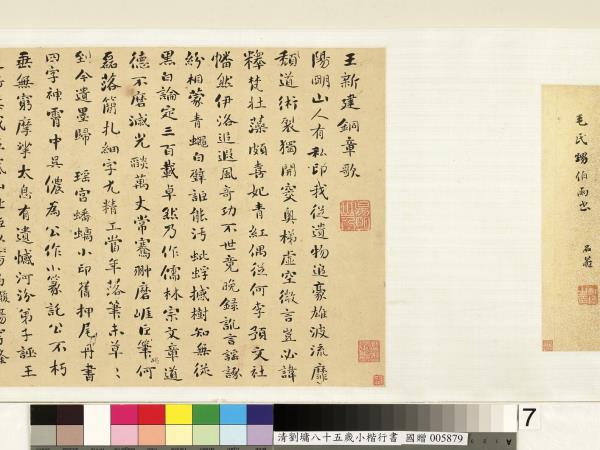 毛氏
伯雨
石菴
王新建銅章歌
陽明山人有私印我從遺物追豪雄波流靡
頹道術裂獨開窔奧梯虛空微言豈必諱
釋梵壯藻頗喜妃青紅偶從何李預文社
幡然伊洛追遐風奇功不世竟晚錄訛言謠諑
紛相蒙青蠅白璧詎能汚蚍蜉撼樹知無從
黑白論定三百載卓然乃作儒林宗文章道
德不磨滅光燄萬丈常騫翀磨崖巨筆何
磊落簡札細字尤精工當年落筆未草草
到今遺墨歸 瑤宮蟠螭小印舊押尾丹書
四字神霄中吳儂為公作小篆託公不朽
垂無窮摩挲太息有遺憾河汾弟子誣王
7
清劉墉八十五歲小楷行書 國贈 005879